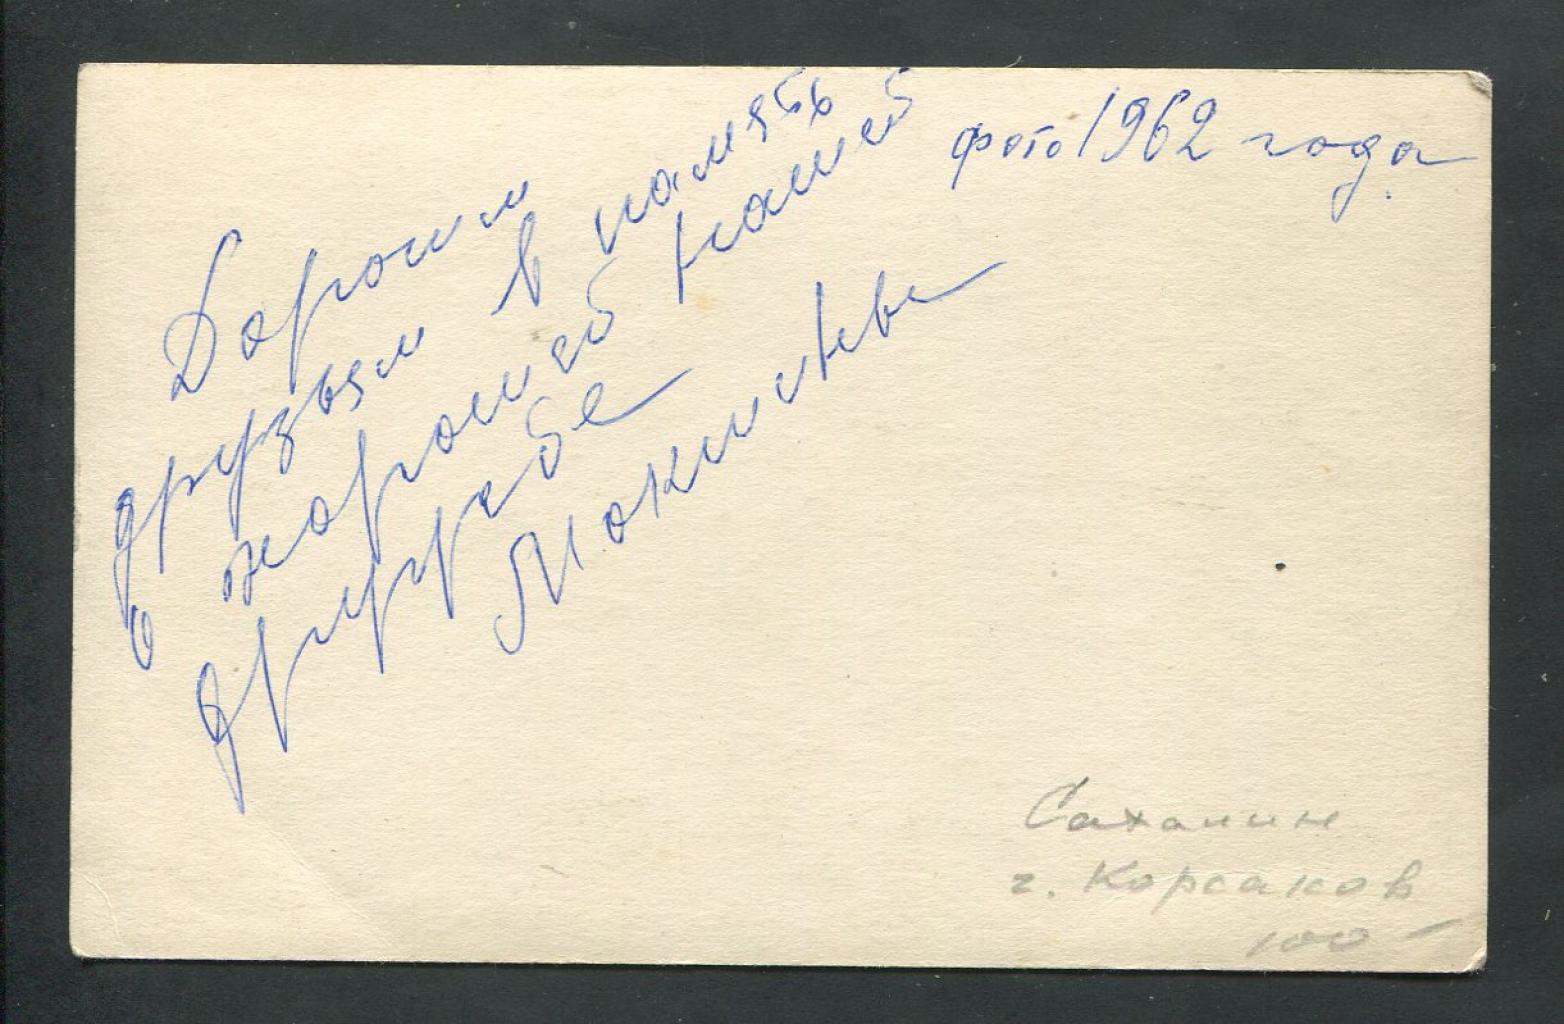 фото 1962 года
Дорогим
друзьям в память
о хорошей нашей
дружбе
Сахалин
г. Корсаков
100-